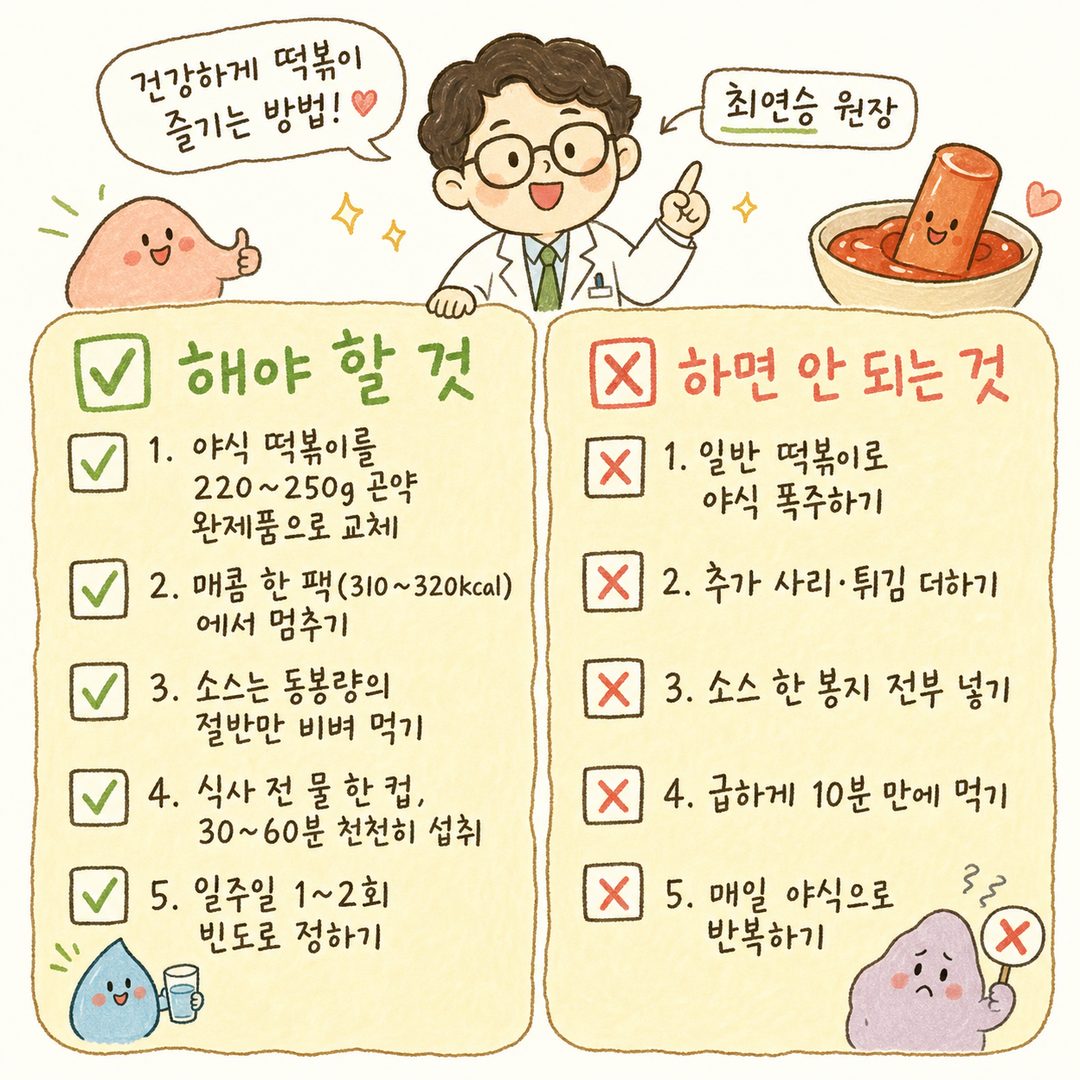 건강하게 떡볶이
즐기는 방법!
최연승 원장
해야 할 것
1. 야식 떡볶이를
220~250g 곤약
완제품으로 교체
2. 매콤 한 팩(310~320kcal)
에서 멈추기
3. 소스는 동봉량의
절반만 비벼 먹기
4. 식사 전 물 한 컵,
30~60분 천천히 섭취
5. 일주일 1~2회
빈도로 정하기
하면 안 되는 것
1. 일반 떡볶이로
야식 폭주하기
2. 추가 사리·튀김 더하기
3. 소스 한 봉지 전부 넣기
4. 급하게 10분 만에 먹기
5. 매일 야식으로
반복하기